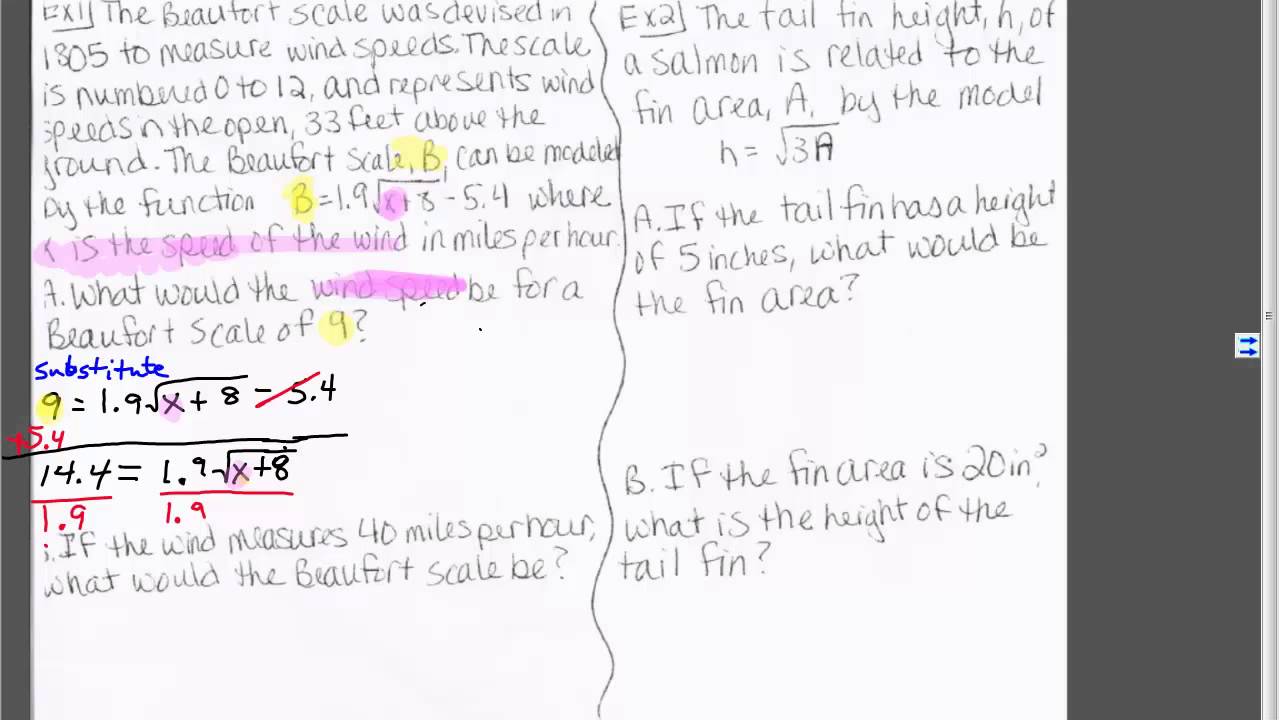 Ex1] The Beaufort scale was devised in
1805 to measure wind speeds. The scale
is numbered 0 to 12, and represents wind
speeds in the open, 33 feet above the
ground. The Beaufort Scale, B, can be modeled
by the function B = 1.9√x+8 - 5.4 where
x is the speed of the wind in miles per hour.
A. What would the wind speed be for a
Beaufort Scale of 9?
substitute
9 = 1.9√x + 8 - 5.4
+5.4
14.4 = 1.9√x+8
1.9 1.9
If the wind measures 40 miles per hour,
what would the Beaufort scale be?
Ex2] The tail fin height, h, of
a salmon is related to the
fin area, A, by the model
h = √3A
A. If the tail fin has a height
of 5 inches, what would be
the fin area?
B. If the fin area is 20in²,
what is the height of the
tail fin?